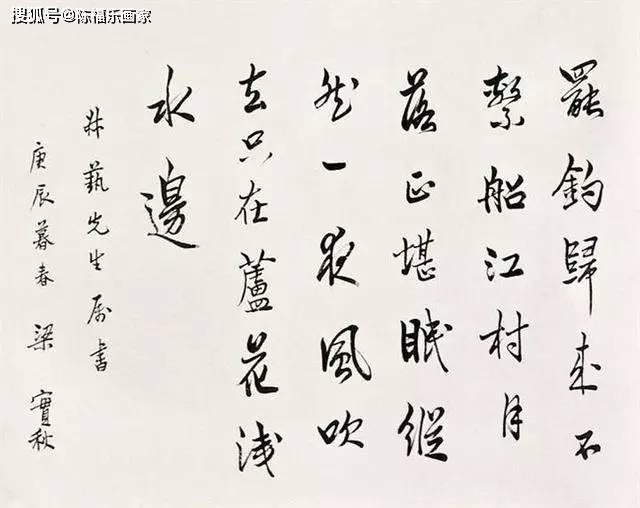 搜狐号@陈福乐画家
罷釣歸來不
繫船江村月
落正堪眠縱
然一夜風吹
去只在蘆花淺
水邊
舜藝先生属書
庚辰暮春 梁實秋